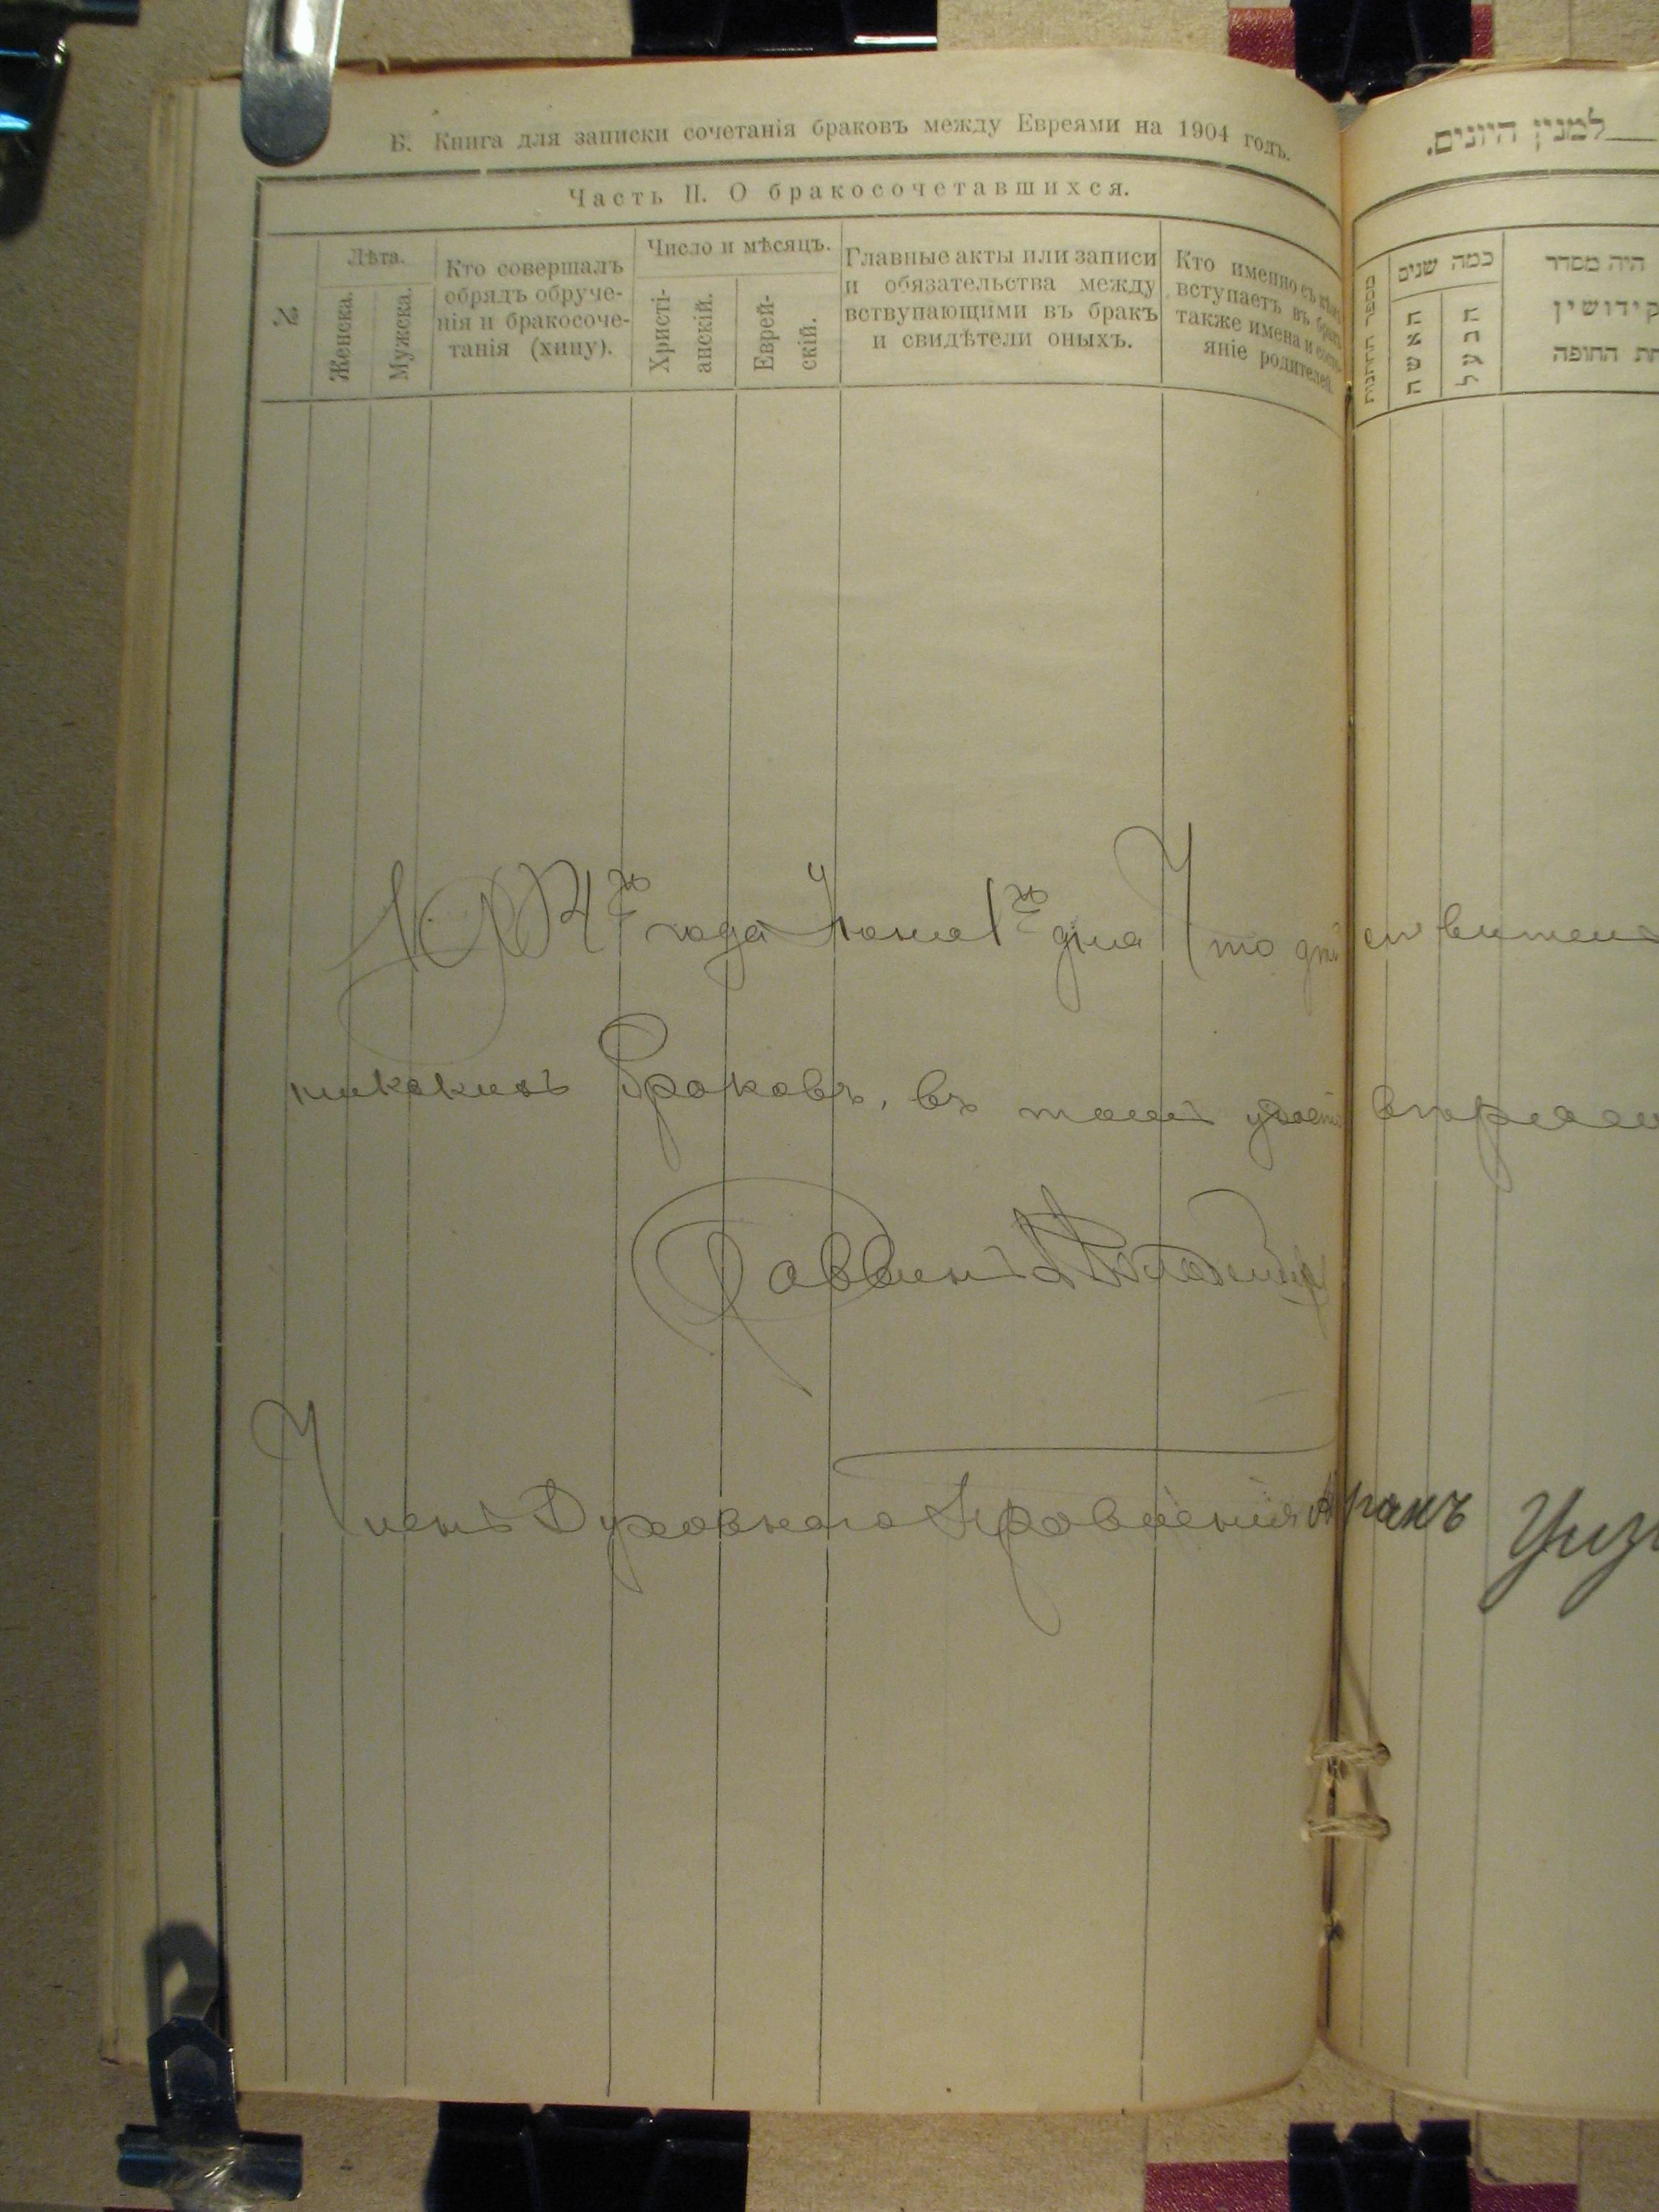 Б. Книга для записки сочетанія браковъ между Евреями на 1904 годъ.
Часть II. О бракосочетавшихся.
№
Лѣта.
Женска.
Мужска.
Кто совершалъ
обрядъ обруче-
нія и бракосоче-
танія (хипу).
Число и мѣсяцъ.
Христі-
анскій.
Еврей-
скій.
Главные акты или записи
и обязательства между
вствупающими въ бракъ
и свидѣтели оныхъ.
Кто именно съ кѣмъ
вступаетъ въ бракъ
также имена и состо-
яніе родителей.
למנין היונים.
מספר החתונות
כמה שנים
האשה
הבעל
היה מסדר
קידושין
החופה
1904 го года Іюня 1 го дня Что
никакихъ Браковъ, въ томъ
Раввинъ
Членъ Духовнаго Правленія